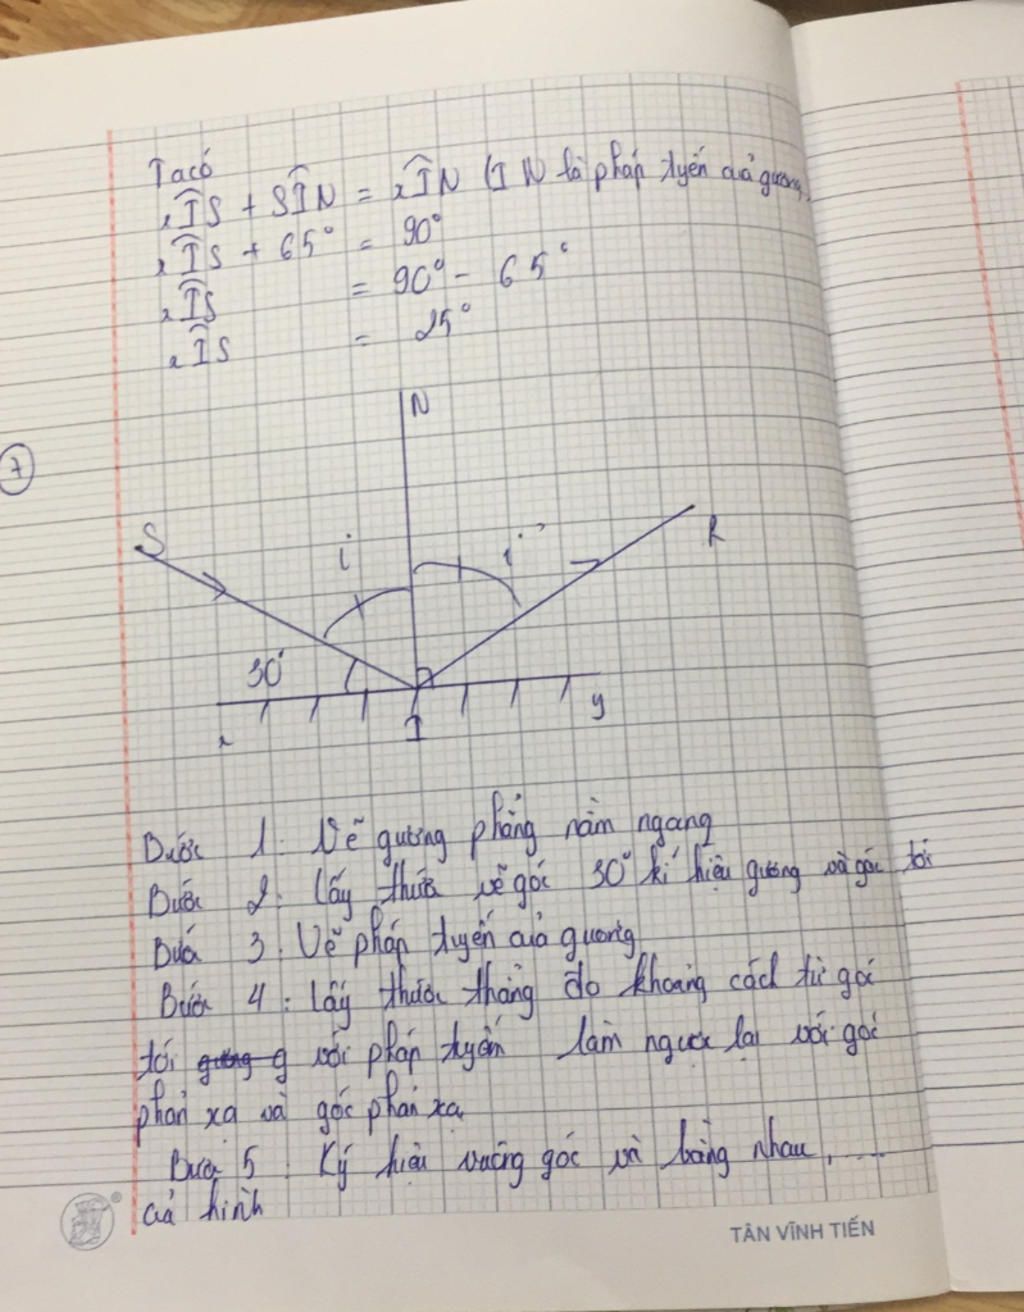 Ta có
xÎS + SÎN = xÎN (IN là pháp tuyến của gương)
xÎS + 65° = 90°
xÎS = 90° - 65°
xÎS = 25°
N
7
S
i
i'
R
30°
x
I
y
Bước 1: Vẽ gương phẳng nằm ngang
Bước 2: Lấy thước vẽ góc 30° kí hiệu gương và góc tới
Bước 3: Vẽ pháp tuyến của gương
Bước 4: Lấy thước thẳng đo khoảng cách từ góc
tới với pháp tuyến làm ngược lại với góc
phản xạ và góc phản xạ
Bước 5: Ký hiệu vuông góc và bằng nhau, ....
cả hình
TÂN VĨNH TIẾN